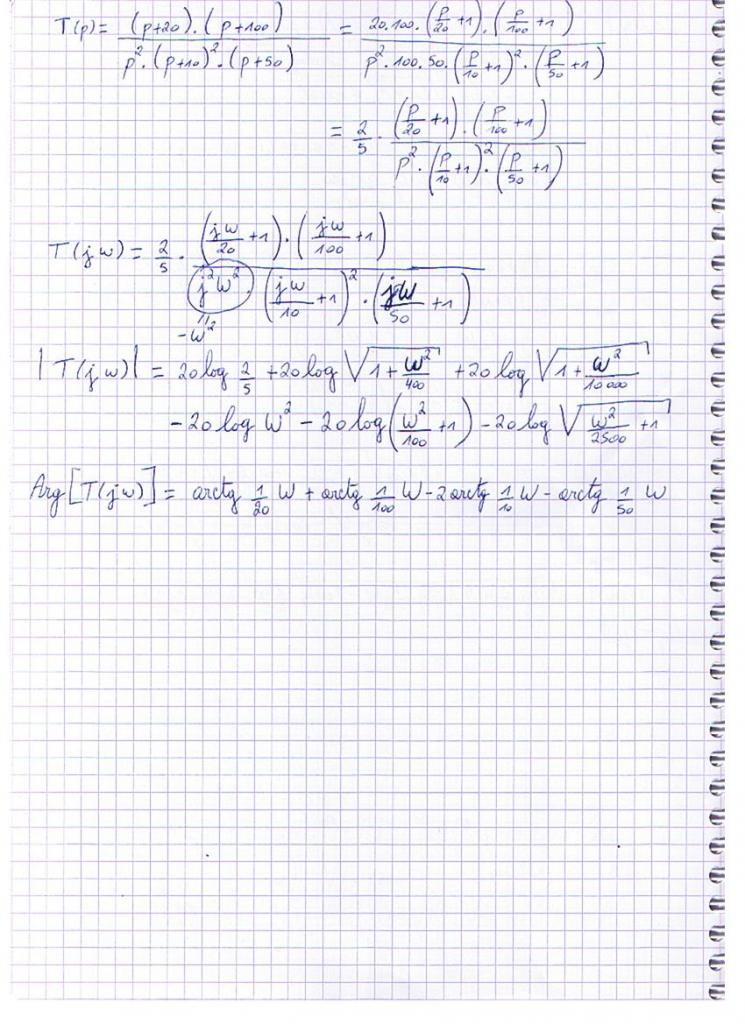 T(p) = (p+20).(p+100) / p².(p+10)².(p+50) = 20.100.(p/20 +1).(p/100 +1) / p².100.50.(p/10 +1)².(p/50 +1)
= 2/5 . (p/20 +1).(p/100 +1) / p².(p/10 +1)².(p/50 +1)
T(jw) = 2/5 . (jw/20 +1).(jw/100 +1) / j²w².(jw/10 +1)².(jw/50 +1)
-w²
|T(jw)| = 20log 2/5 +20log √(1+w²/400) +20log √(1+w²/10000)
-20log w² - 20log(w²/100 +1) - 20log √(w²/2500 +1)
Arg[T(jw)] = arctg 1/20 w + arctg 1/100 w - 2arctg 1/10 w - arctg 1/50 w